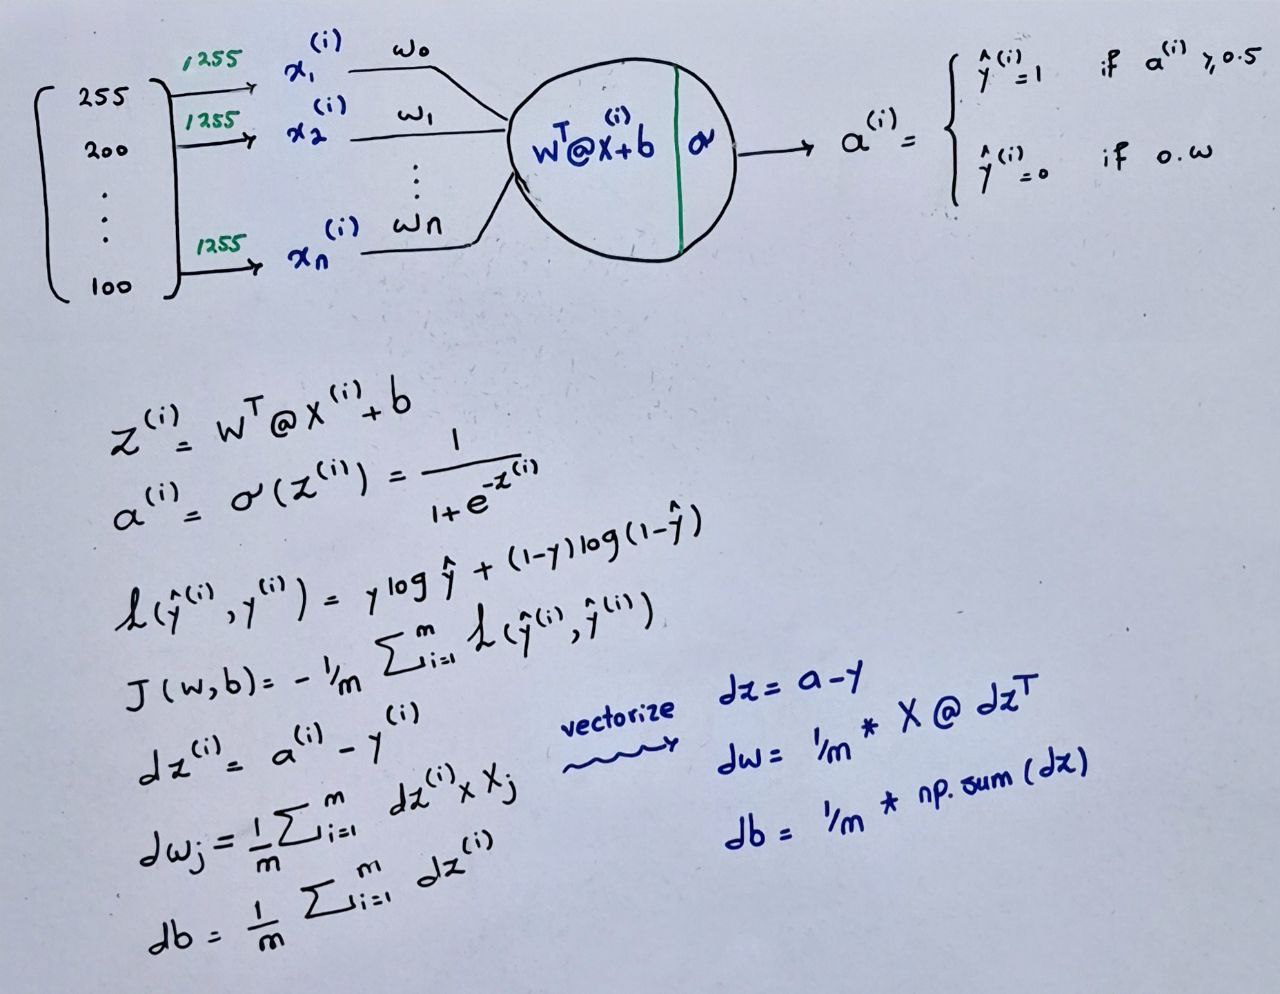 255 /255 x₁⁽ⁱ⁾ w₀
200 /255 x₂⁽ⁱ⁾ w₁
⋮ ⋮
100 /255 xₙ⁽ⁱ⁾ wₙ
wᵀ@X⁽ⁱ⁾+b σ
a⁽ⁱ⁾ = { ŷ⁽ⁱ⁾=1 if a⁽ⁱ⁾ ≥ 0.5
ŷ⁽ⁱ⁾=0 if o.w
z⁽ⁱ⁾ = wᵀ@X⁽ⁱ⁾+b
a⁽ⁱ⁾ = σ(z⁽ⁱ⁾) = 1/(1+e^(-z⁽ⁱ⁾))
L(ŷ⁽ⁱ⁾, y⁽ⁱ⁾) = y log ŷ + (1-y) log(1-ŷ)
J(w,b) = - 1/m Σᵢ₌₁ᵐ L(ŷ⁽ⁱ⁾, ŷ⁽ⁱ⁾)
dz⁽ⁱ⁾ = a⁽ⁱ⁾ - y⁽ⁱ⁾
dwⱼ = 1/m Σᵢ₌₁ᵐ dz⁽ⁱ⁾ × Xⱼ
db = 1/m Σᵢ₌₁ᵐ dz⁽ⁱ⁾
vectorize
dz = a-y
dw = 1/m * X @ dzᵀ
db = 1/m * np.sum(dz)